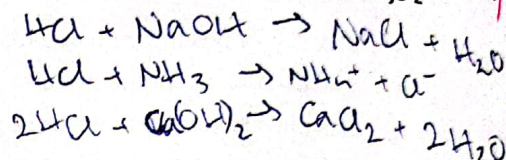 HCl + NaOH → NaCl + H₂O
HCl + NH₃ → NH₄⁺ + Cl⁻
2HCl + Ca(OH)₂ → CaCl₂ + 2H₂O